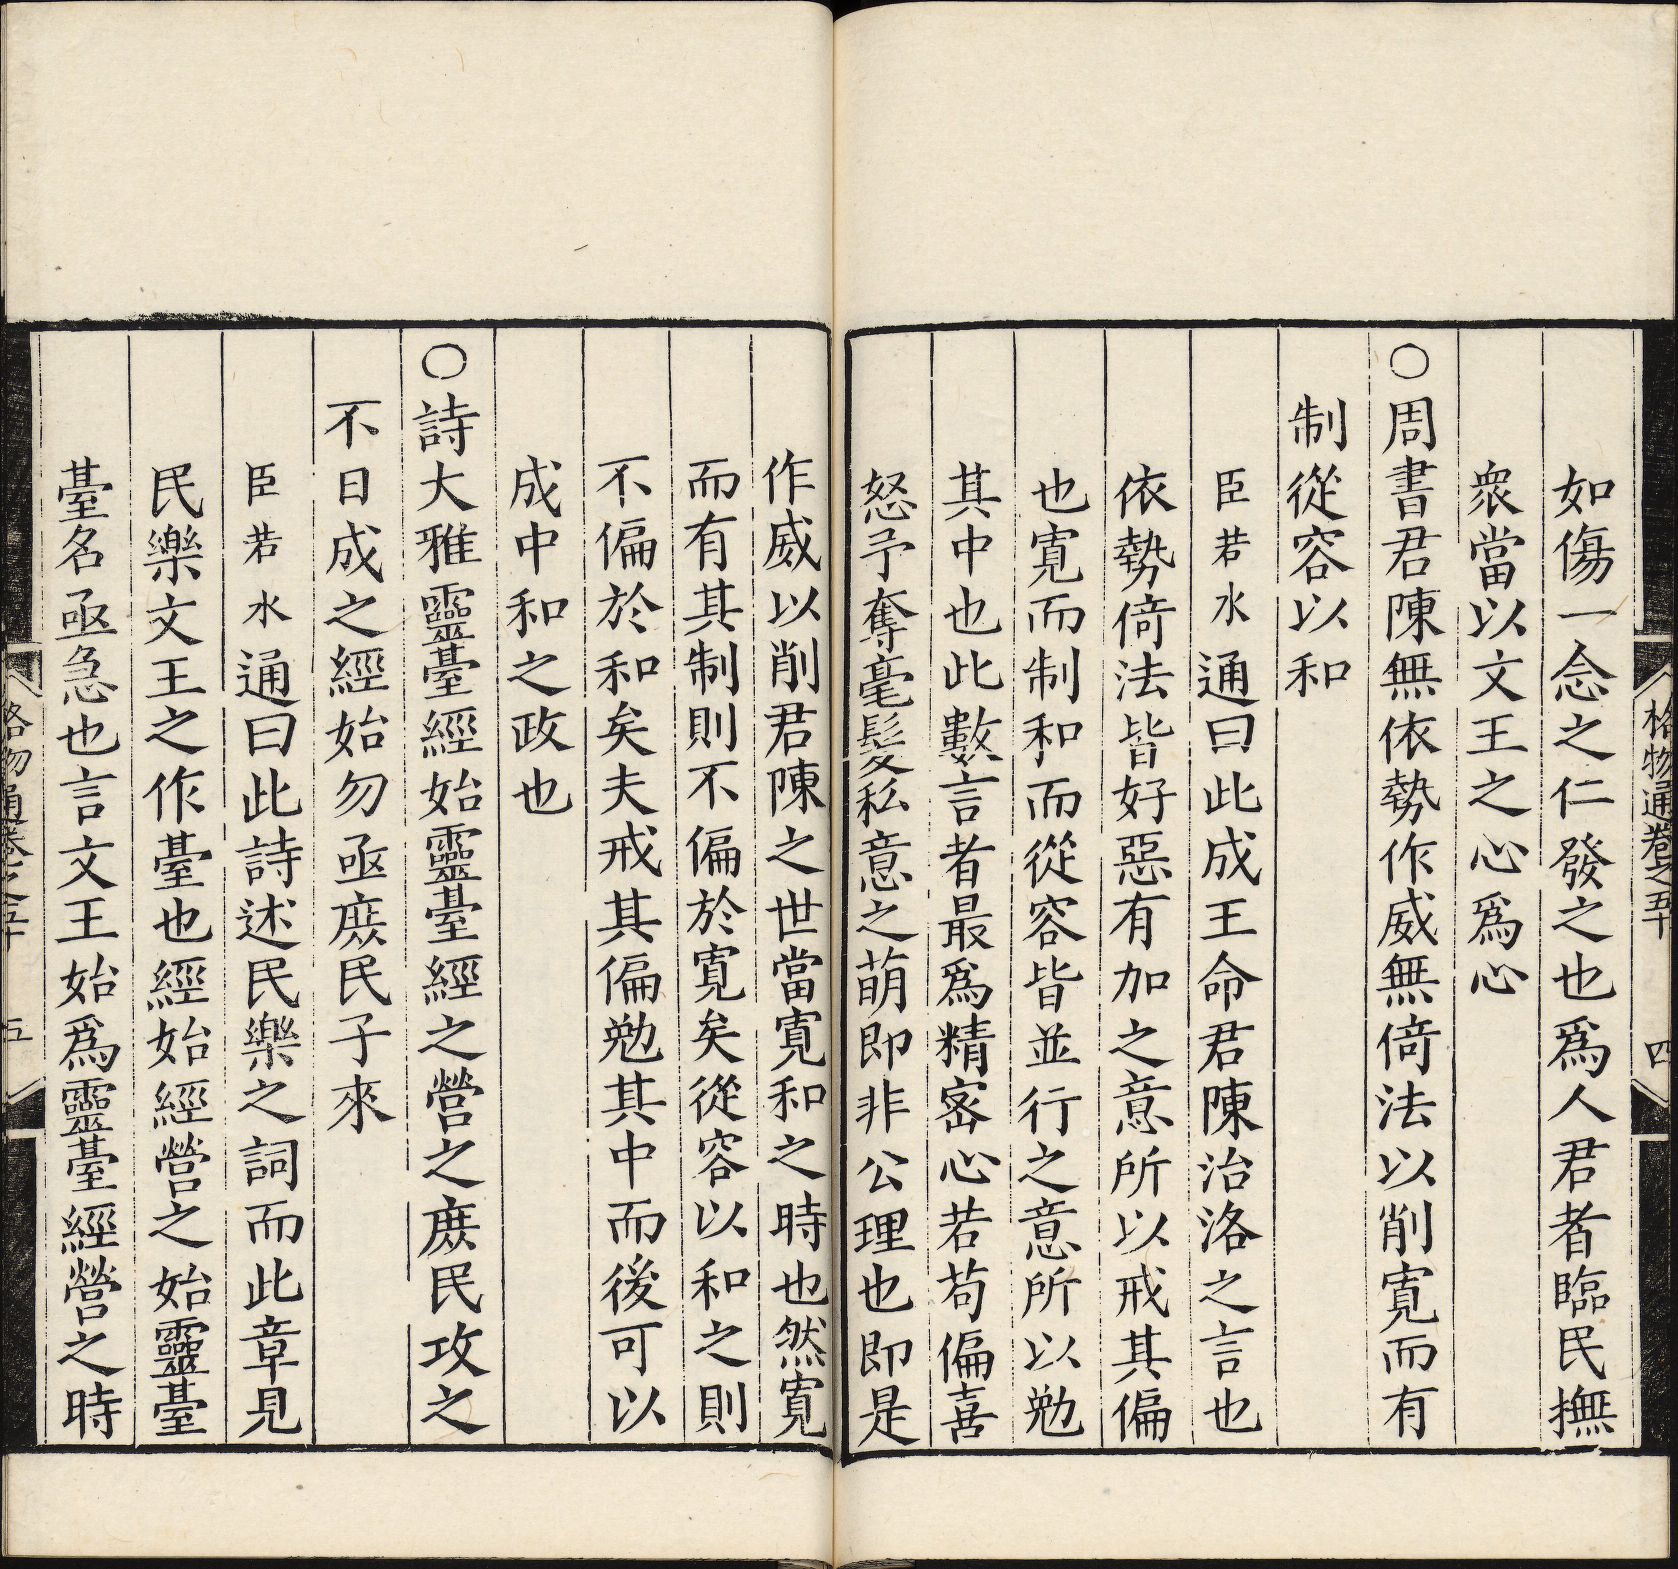 如傷一念之仁發之也爲人君者臨民撫
衆當以文王之心爲心
○周書君陳無依勢作威無倚法以削寬而有
制從容以和
臣若水通曰此成王命君陳治洛之言也
依勢倚法皆好惡有加之意所以戒其偏
也寬而制和而從容皆並行之意所以勉
其中也此數言者最爲精密心若苟偏喜
怒予奪毫髮私意之萌即非公理也即是
作威以削君陳之世當寬和之時也然寬
而有其制則不偏於寬矣從容以和之則
不偏於和矣夫戒其偏勉其中而後可以
成中和之政也
○詩大雅靈臺經始靈臺經之營之庶民攻之
不日成之經始勿亟庶民子來
臣若水通曰此詩述民樂之詞而此章見
民樂文王之作臺也經始經營之始靈臺
臺名亟急也言文王始爲靈臺經營之時
格物通卷之五十 四
格物通卷之五十 五